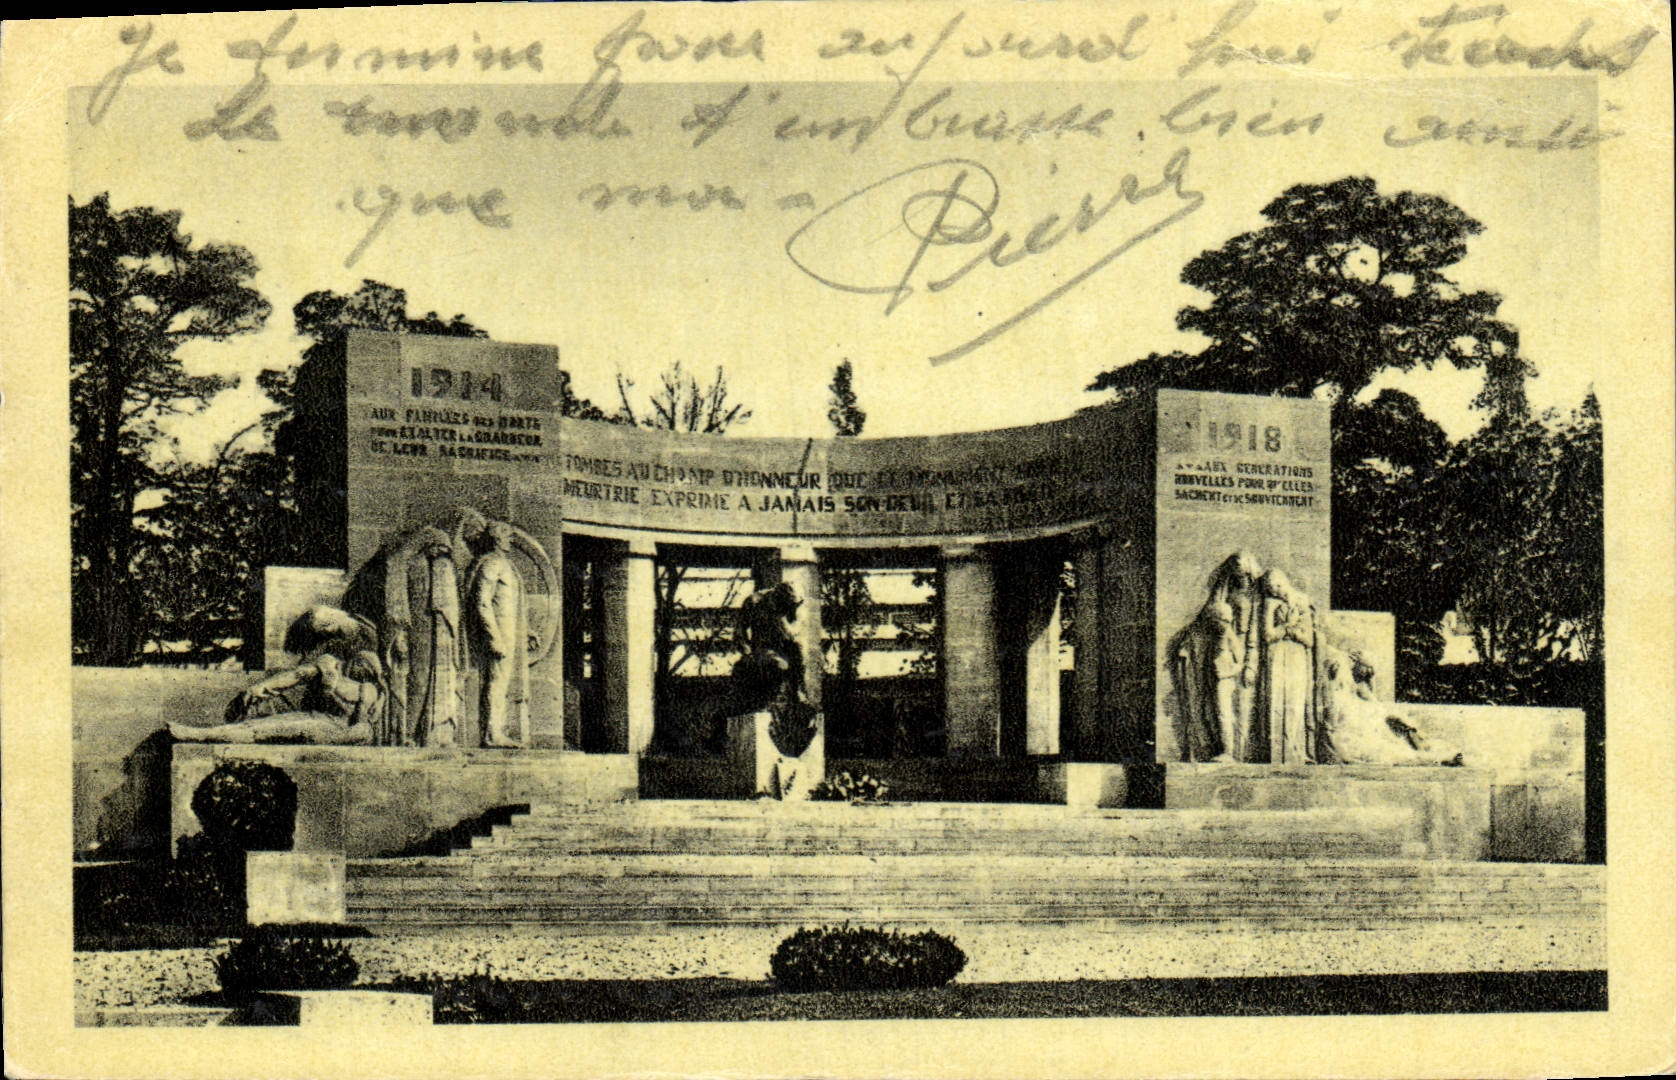 Je termine pour aujourd hui
le monde t'embrasse bien ainsi
que moi -
Pierre
1914
AUX FAMILLES DES MORTS
POUR EXALTER LA GRANDEUR
DE LEUR SACRIFICE
TOMBES AU CHAMP D'HONNEUR QUE CE MONUMENT
MEURTRIE EXPRIME A JAMAIS SON DEUIL ET SA
1918
AUX GENERATIONS
NOUVELLES POUR QU'ELLES
SACHENT ET SE SOUVIENNENT